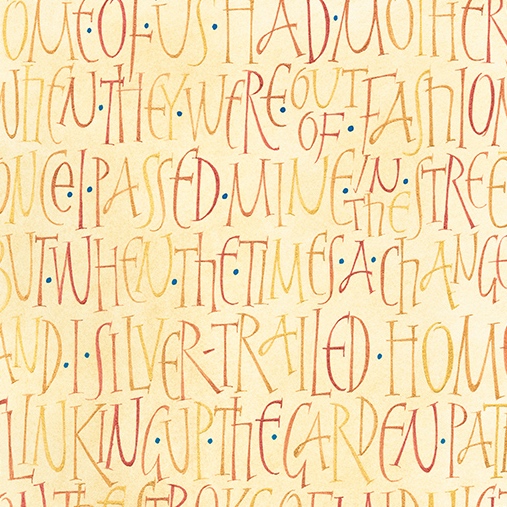 OME·OF·US·HAD·MOTHER
WHEN·THEY·WERE·OUT OF·FASHION
ONCE·I·PASSED·MINE·IN·THE STREE
BUT·WHEN·THE TIMES·A·CHANGE
AND·I SILVER-TRAILED·HOME
LINKING·UP·THE·GARDEN·PAT
ON THE STROKE OF MIDNIGHT